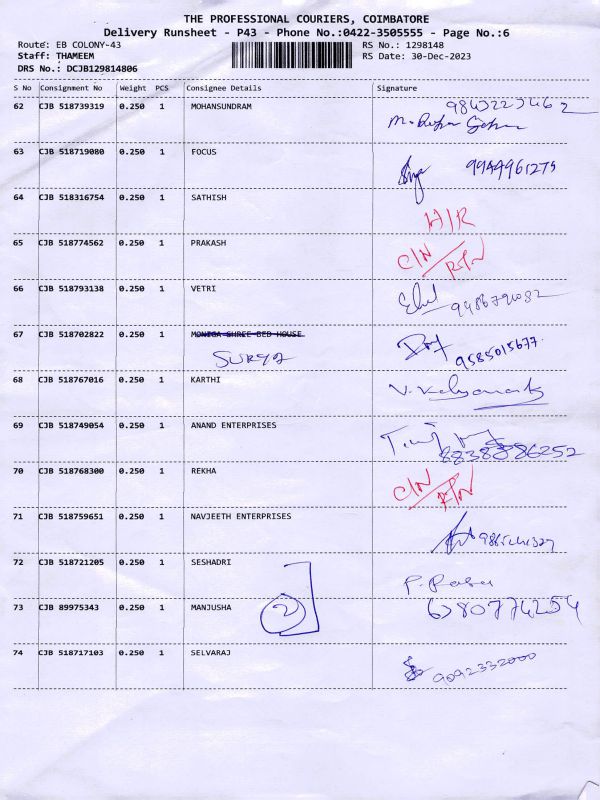 THE PROFESSIONAL COURIERS, COIMBATORE
Delivery Runsheet - P43 - Phone No.:0422-3505555 - Page No.:6
Route: EB COLONY-43 RS No.: 1298148
Staff: THAMEEM RS Date: 30-Dec-2023
DRS No.: DCJB129814806
S No Consignment No Weight PCS Consignee Details Signature
62 CJB 518739319 0.250 1 MOHANSUNDRAM
63 CJB 518719080 0.250 1 FOCUS 9944961275
64 CJB 518316754 0.250 1 SATHISH
65 CJB 518774562 0.250 1 PRAKASH C/N
RTN
66 CJB 518793138 0.250 1 VETRI
67 CJB 518702822 0.250 1 MONICA SHREE BED HOUSE
SURYA 9585015677
68 CJB 518767016 0.250 1 KARTHI
69 CJB 518749054 0.250 1 ANAND ENTERPRISES
70 CJB 518768300 0.250 1 REKHA C/N
RTN
71 CJB 518759651 0.250 1 NAVJEETH ENTERPRISES
72 CJB 518721205 0.250 1 SESHADRI
73 CJB 89975343 0.250 1 MANJUSHA 2 6380774254
74 CJB 518717103 0.250 1 SELVARAJ 9092332000